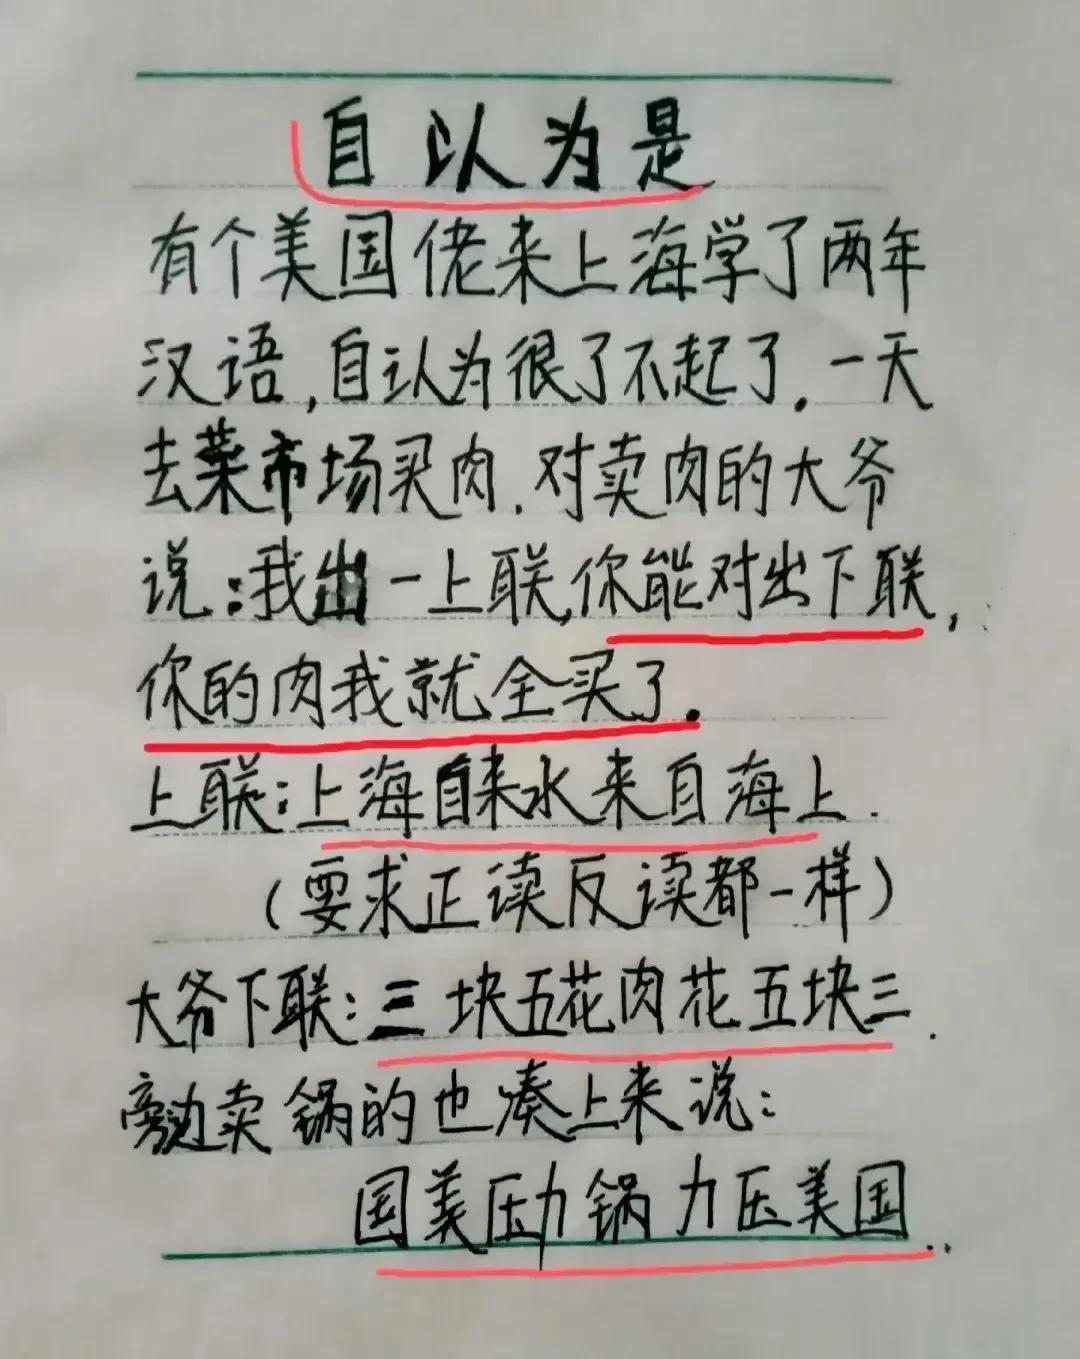 自以为是
有个美国佬来上海学了两年
汉语,自认为很了不起了.一天
去菜市场买肉.对卖肉的大爷
说:我出一上联,你能对出下联,
你的肉我就全买了.
上联:上海自来水来自海上.
(要求正读反读都一样)
大爷下联:三块五花肉花五块三.
旁边卖锅的也凑上来说:
国美压力锅力压美国..